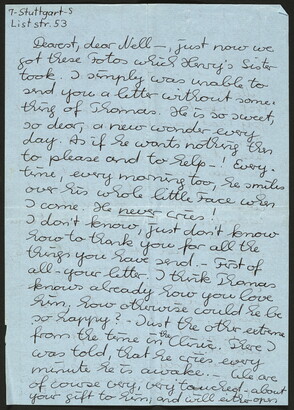 7-Stuttgart-S
Liststr. 53
Dearest, dear Nell –, just now we
got these Fotos which Henry's Sister
took. I simply was unable to
send you a letter without some-
thing of Thomas. He is so sweet,
so dear, a new wonder every
day. As if he wants nothing than
to please and to help –! Every-
time, every morning too, he smiles
over his whole little Face when
I come. He never cries!
I don't know, just don't know
how to thank you for all the
things you have send. – First of
all – your letter. I think Thomas
knows already how you love
him, how otherwise could he be
so happy? – Just the other extreme
from the time in the Clinic. There I
was told, that he cries every
minute he is awake. – We are
of course very, very touched – about
your gift to him, and will either open